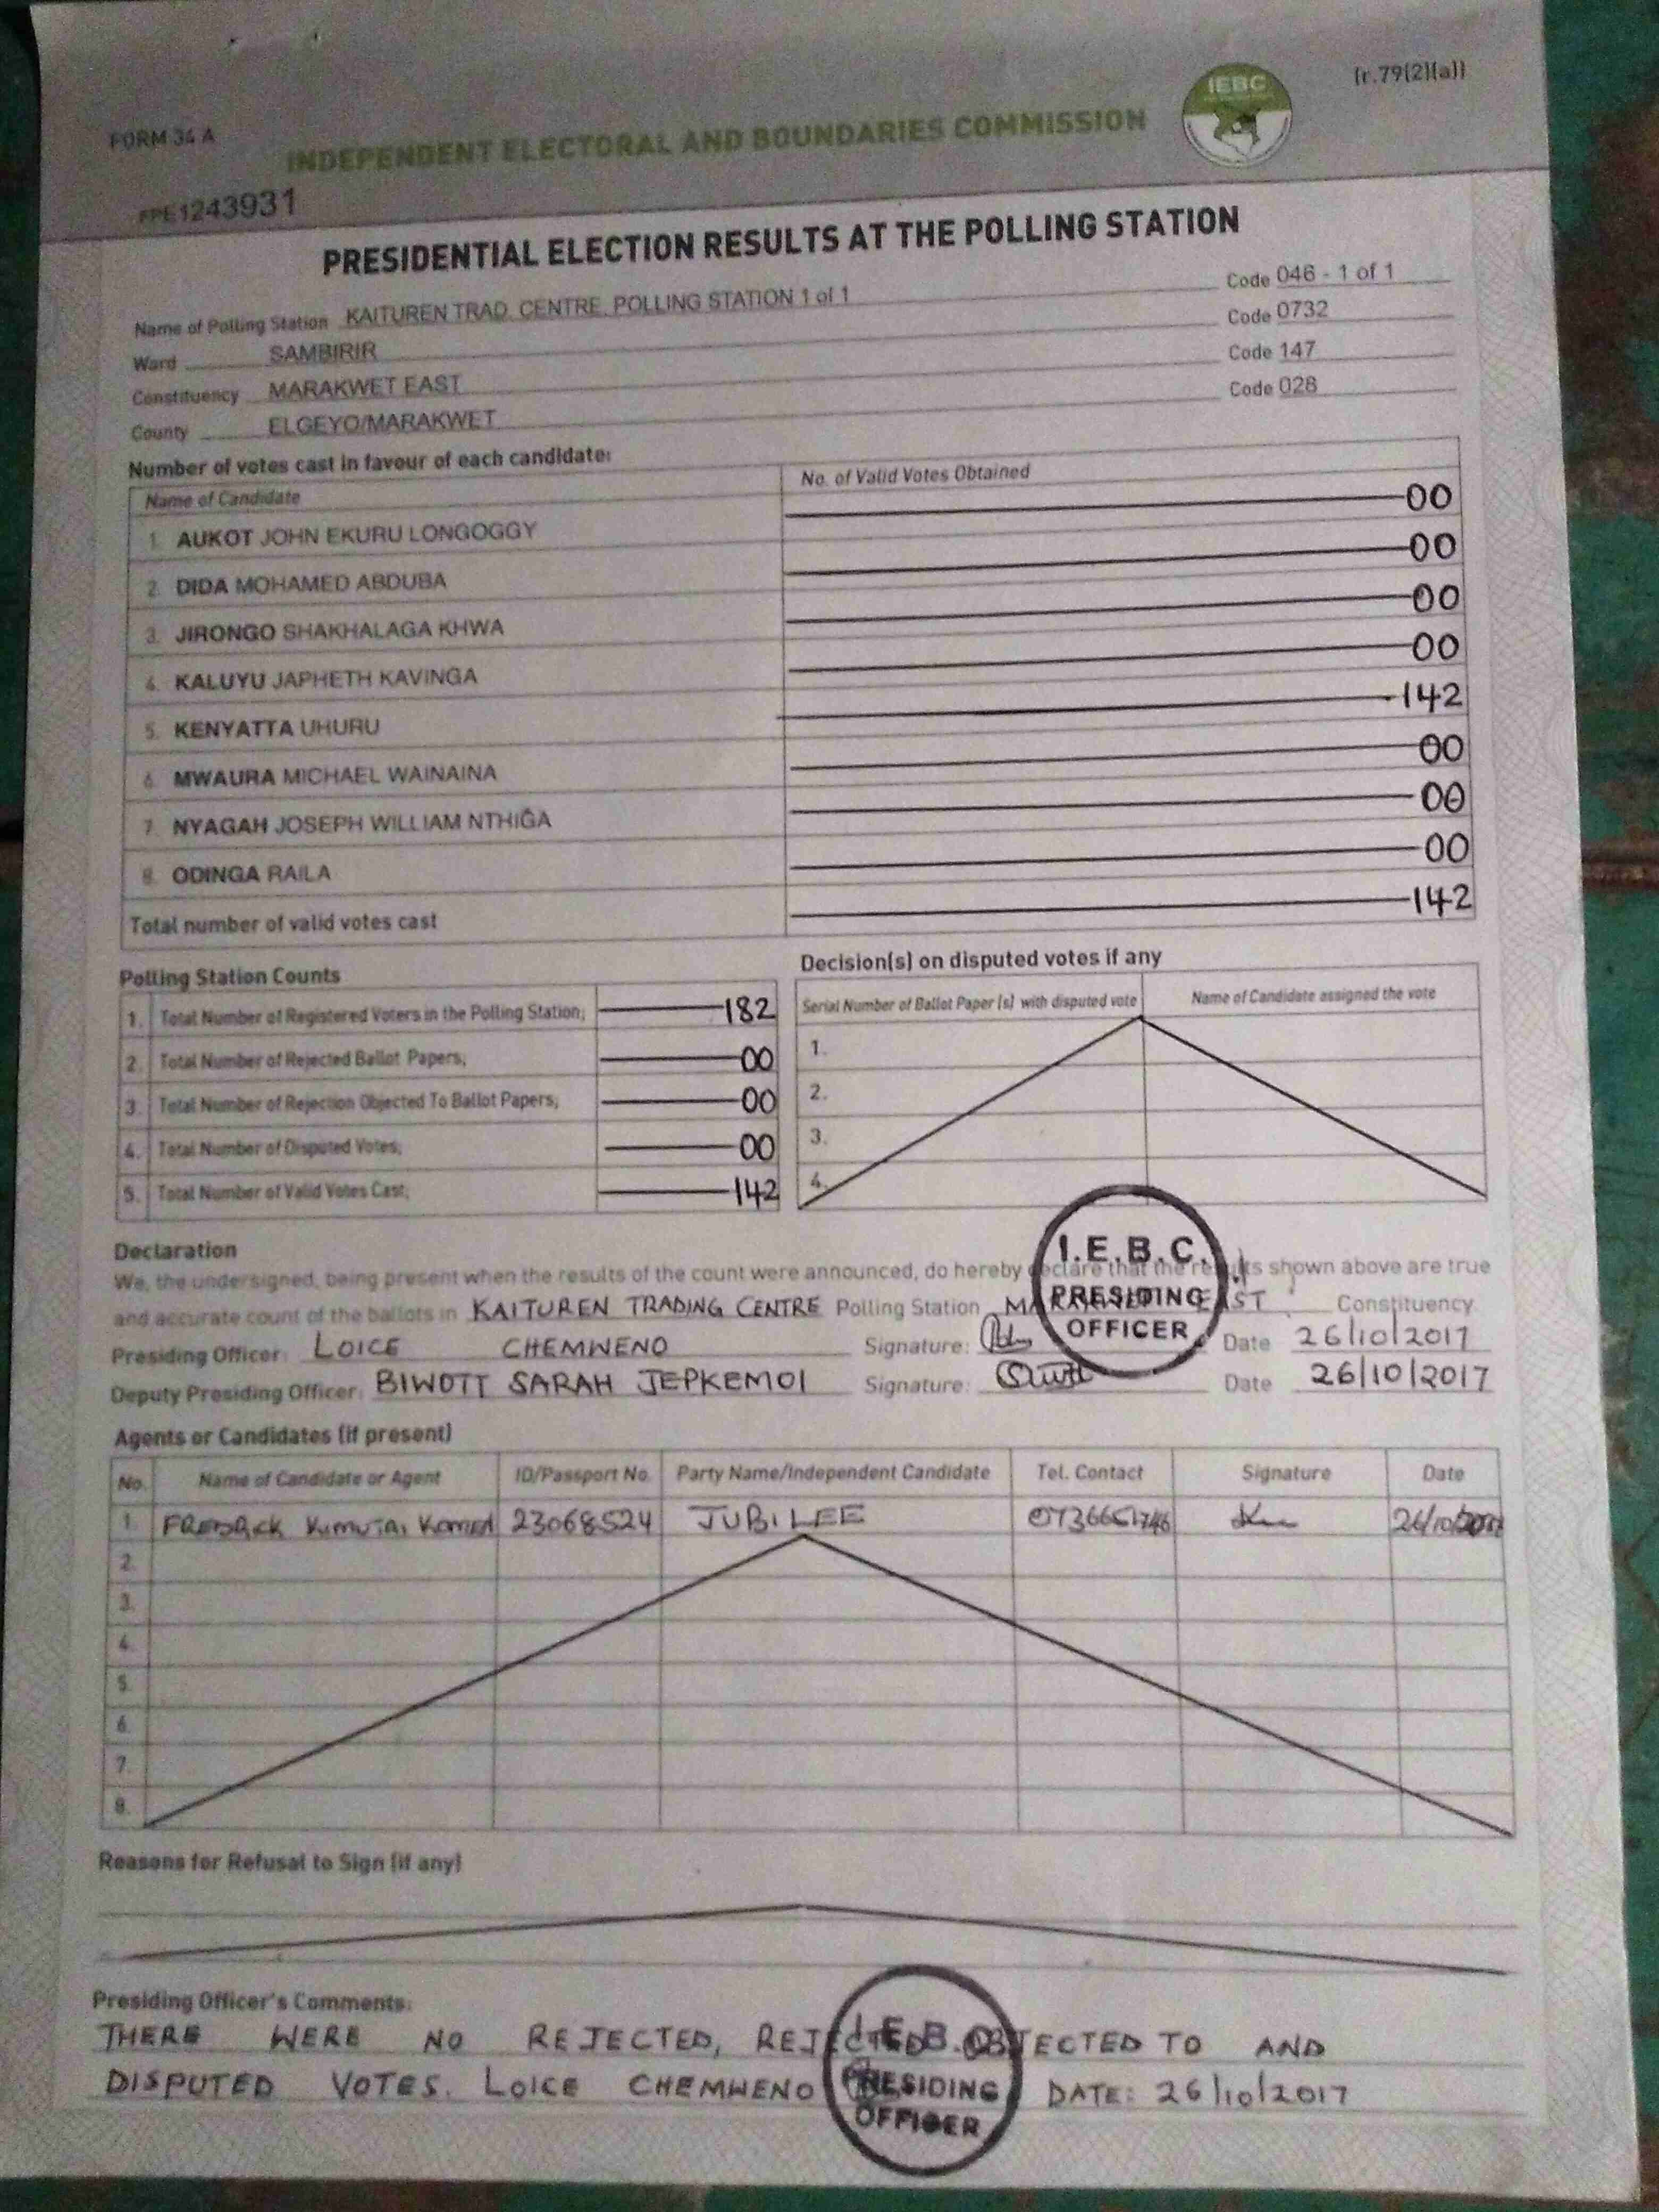 (r.79(2)(a))
IEBC
FORM 34 A
INDEPENDENT ELECTORAL AND BOUNDARIES COMMISSION
FPE1243931
PRESIDENTIAL ELECTION RESULTS AT THE POLLING STATION
Name of Polling Station KAITUREN TRAD. CENTRE. POLLING STATION 1 of 1 Code 046 - 1 of 1
Ward SAMBIRIR Code 0732
Constituency MARAKWET EAST Code 147
County ELGEYO/MARAKWET Code 028
Number of votes cast in favour of each candidate:
Name of Candidate No. of Valid Votes Obtained
1. AUKOT JOHN EKURU LONGOGGY 00
2. DIDA MOHAMED ABDUBA 00
3. JIRONGO SHAKHALAGA KHWA 00
4. KALUYU JAPHETH KAVINGA 00
5. KENYATTA UHURU 142
6. MWAURA MICHAEL WAINAINA 00
7. NYAGAH JOSEPH WILLIAM NTHIGA 00
8. ODINGA RAILA 00
Total number of valid votes cast 142
Polling Station Counts
1. Total Number of Registered Voters in the Polling Station; 182
2. Total Number of Rejected Ballot Papers; 00
3. Total Number of Rejection Objected To Ballot Papers; 00
4. Total Number of Disputed Votes; 00
5. Total Number of Valid Votes Cast; 142
Decision(s) on disputed votes if any
Serial Number of Ballot Paper (s) with disputed vote Name of Candidate assigned the vote
1.
2.
3.
4.
Declaration
We, the undersigned, being present when the results of the count were announced, do hereby declare that the results shown above are true
and accurate count of the ballots in KAITUREN TRADING CENTRE Polling Station MARAKWET EAST Constituency
Presiding Officer: LOICE CHEMWENO Signature: Date 26/10/2017
Deputy Presiding Officer: BIWOTT SARAH JEPKEMOI Signature: Date 26/10/2017
I.E.B.C.
PRESIDING
OFFICER
Agents or Candidates (if present)
No. Name of Candidate or Agent ID/Passport No. Party Name/Independent Candidate Tel. Contact Signature Date
1. FREDRICK KIMUTAI 23068524 JUBILEE 26/10/2017
2.
3.
4.
5.
6.
7.
8.
Reasons for Refusal to Sign (if any)
Presiding Officer's Comments:
THERE WERE NO REJECTED, REJECTED OBJECTED TO AND
DISPUTED VOTES. LOICE CHEMWENO DATE: 26/10/2017
I.E.B.C.
PRESIDING
OFFICER